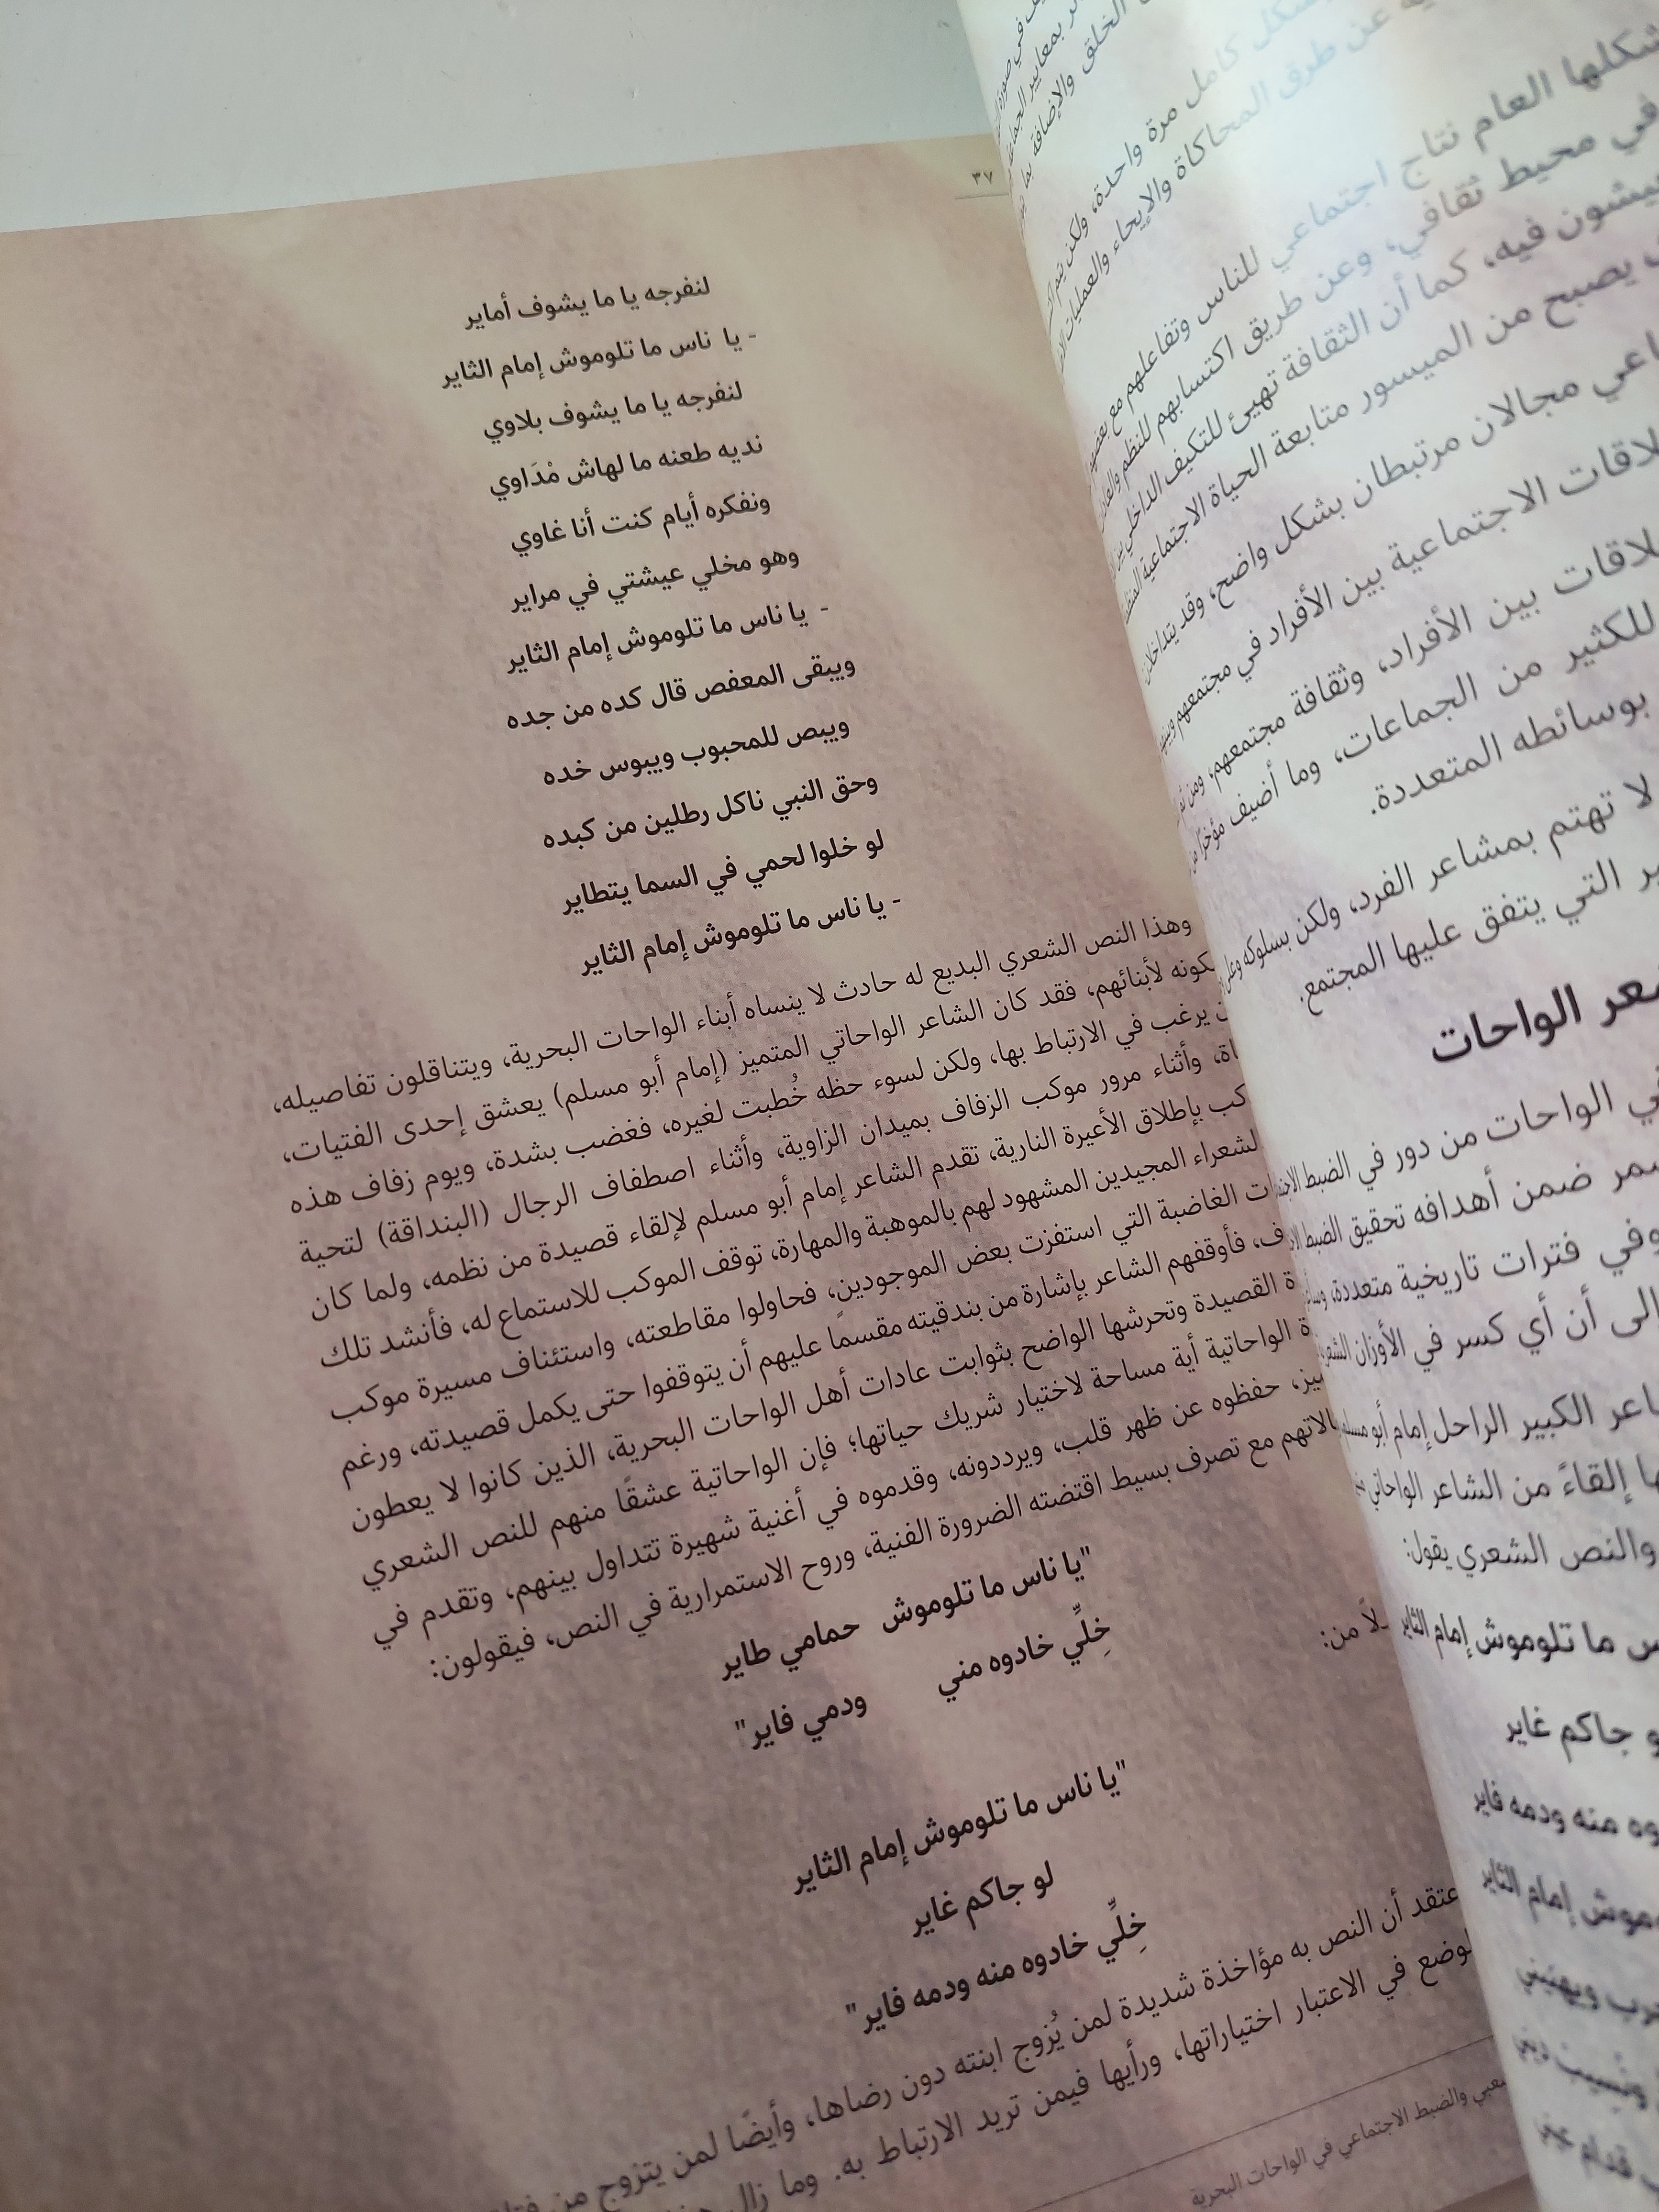 في صورة
بمعايير الجماعة
الخلق والإضافة بما
بشكل كامل مرة واحدة، ولكن يتم
عن طرق المحاكاة والإيحاء والعمليات
شكلها العام نتاج اجتماعي للناس وتفاعلهم مع بعضهم
في محيط ثقافي، وعن طريق اكتسابهم للنظم
يعيشون فيه، كما أن الثقافة تهيئ للتكيف الداخلي بين
يصبح من الميسور متابعة الحياة الاجتماعية
مجالان مرتبطان بشكل واضح، وقد يتداخلان
الاجتماعية بين الأفراد في مجتمعهم
بين الأفراد، وثقافة مجتمعهم، ومن ثم
للكثير من الجماعات، وما أضيف مؤخرًا
بوسائطه المتعددة.
لا تهتم بمشاعر الفرد، ولكن بسلوكه
التي يتفق عليها المجتمع.
الواحات
الواحات من دور في الضبط
ضمن أهدافه تحقيق الضبط
وفي فترات تاريخية متعددة،
إلى أن أي كسر في الأوزان
الكبير الراحل إمام أبو
إلقاءً من الشاعر الواحاتي
والنص الشعري يقول:
ما تلوموش إمام الثاير
جاكم غاير
منه ودمه فاير
إمام الثاير
ويهنيني
قدام
٣٧
لنفرجه يا ما يشوف أماير
- يا ناس ما تلوموش إمام الثاير
لنفرجه يا ما يشوف بلاوي
نديه طعنه ما لهاش مْدَاوي
ونفكره أيام كنت أنا غاوي
وهو مخلي عيشتي في مراير
- يا ناس ما تلوموش إمام الثاير
ويبقى المعفص قال كده من جده
ويبص للمحبوب ويبوس خده
وحق النبي ناكل رطلين من كبده
لو خلوا لحمي في السما يتطاير
- يا ناس ما تلوموش إمام الثاير
وهذا النص الشعري البديع له حادث لا ينساه أبناء الواحات البحرية، ويتناقلون تفاصيله،
لأبنائهم، فقد كان الشاعر الواحاتي المتميز (إمام أبو مسلم) يعشق إحدى الفتيات،
يرغب في الارتباط بها، ولكن لسوء حظه خُطبت لغيره، فغضب بشدة، ويوم زفاف هذه
وأثناء مرور موكب الزفاف بميدان الزاوية، وأثناء اصطفاف الرجال (البنداقة) لتحية
بإطلاق الأعيرة النارية، تقدم الشاعر إمام أبو مسلم لإلقاء قصيدة من نظمه، ولما كان
الشعراء المجيدين المشهود لهم بالموهبة والمهارة، توقف الموكب للاستماع له، فأنشد تلك
الغاضبة التي استفزت بعض الموجودين، فحاولوا مقاطعته، واستئناف مسيرة موكب
فأوقفهم الشاعر بإشارة من بندقيته مقسمًا عليهم أن يتوقفوا حتى يكمل قصيدته، ورغم
القصيدة وتحرشها الواضح بثوابت عادات أهل الواحات البحرية، الذين كانوا لا يعطون
الواحاتية أية مساحة لاختيار شريك حياتها؛ فإن الواحاتية عشقًا منهم للنص الشعري
حفظوه عن ظهر قلب، ويرددونه، وقدموه في أغنية شهيرة تتداول بينهم، وتقدم في
مع تصرف بسيط اقتضته الضرورة الفنية، وروح الاستمرارية في النص، فيقولون:
"يا ناس ما تلوموش حمامي طاير
خِلِّي خادوه مني ودمي فاير"
من:
"يا ناس ما تلوموش إمام الثاير
لو جاكم غاير
خِلِّي خادوه منه ودمه فاير"
أن النص به مؤاخذة شديدة لمن يُزوج ابنته دون رضاها، وأيضًا لمن يتزوج من
في الاعتبار اختياراتها، ورأيها فيمن تريد الارتباط به. وما زال
والضبط الاجتماعي في الواحات البحرية